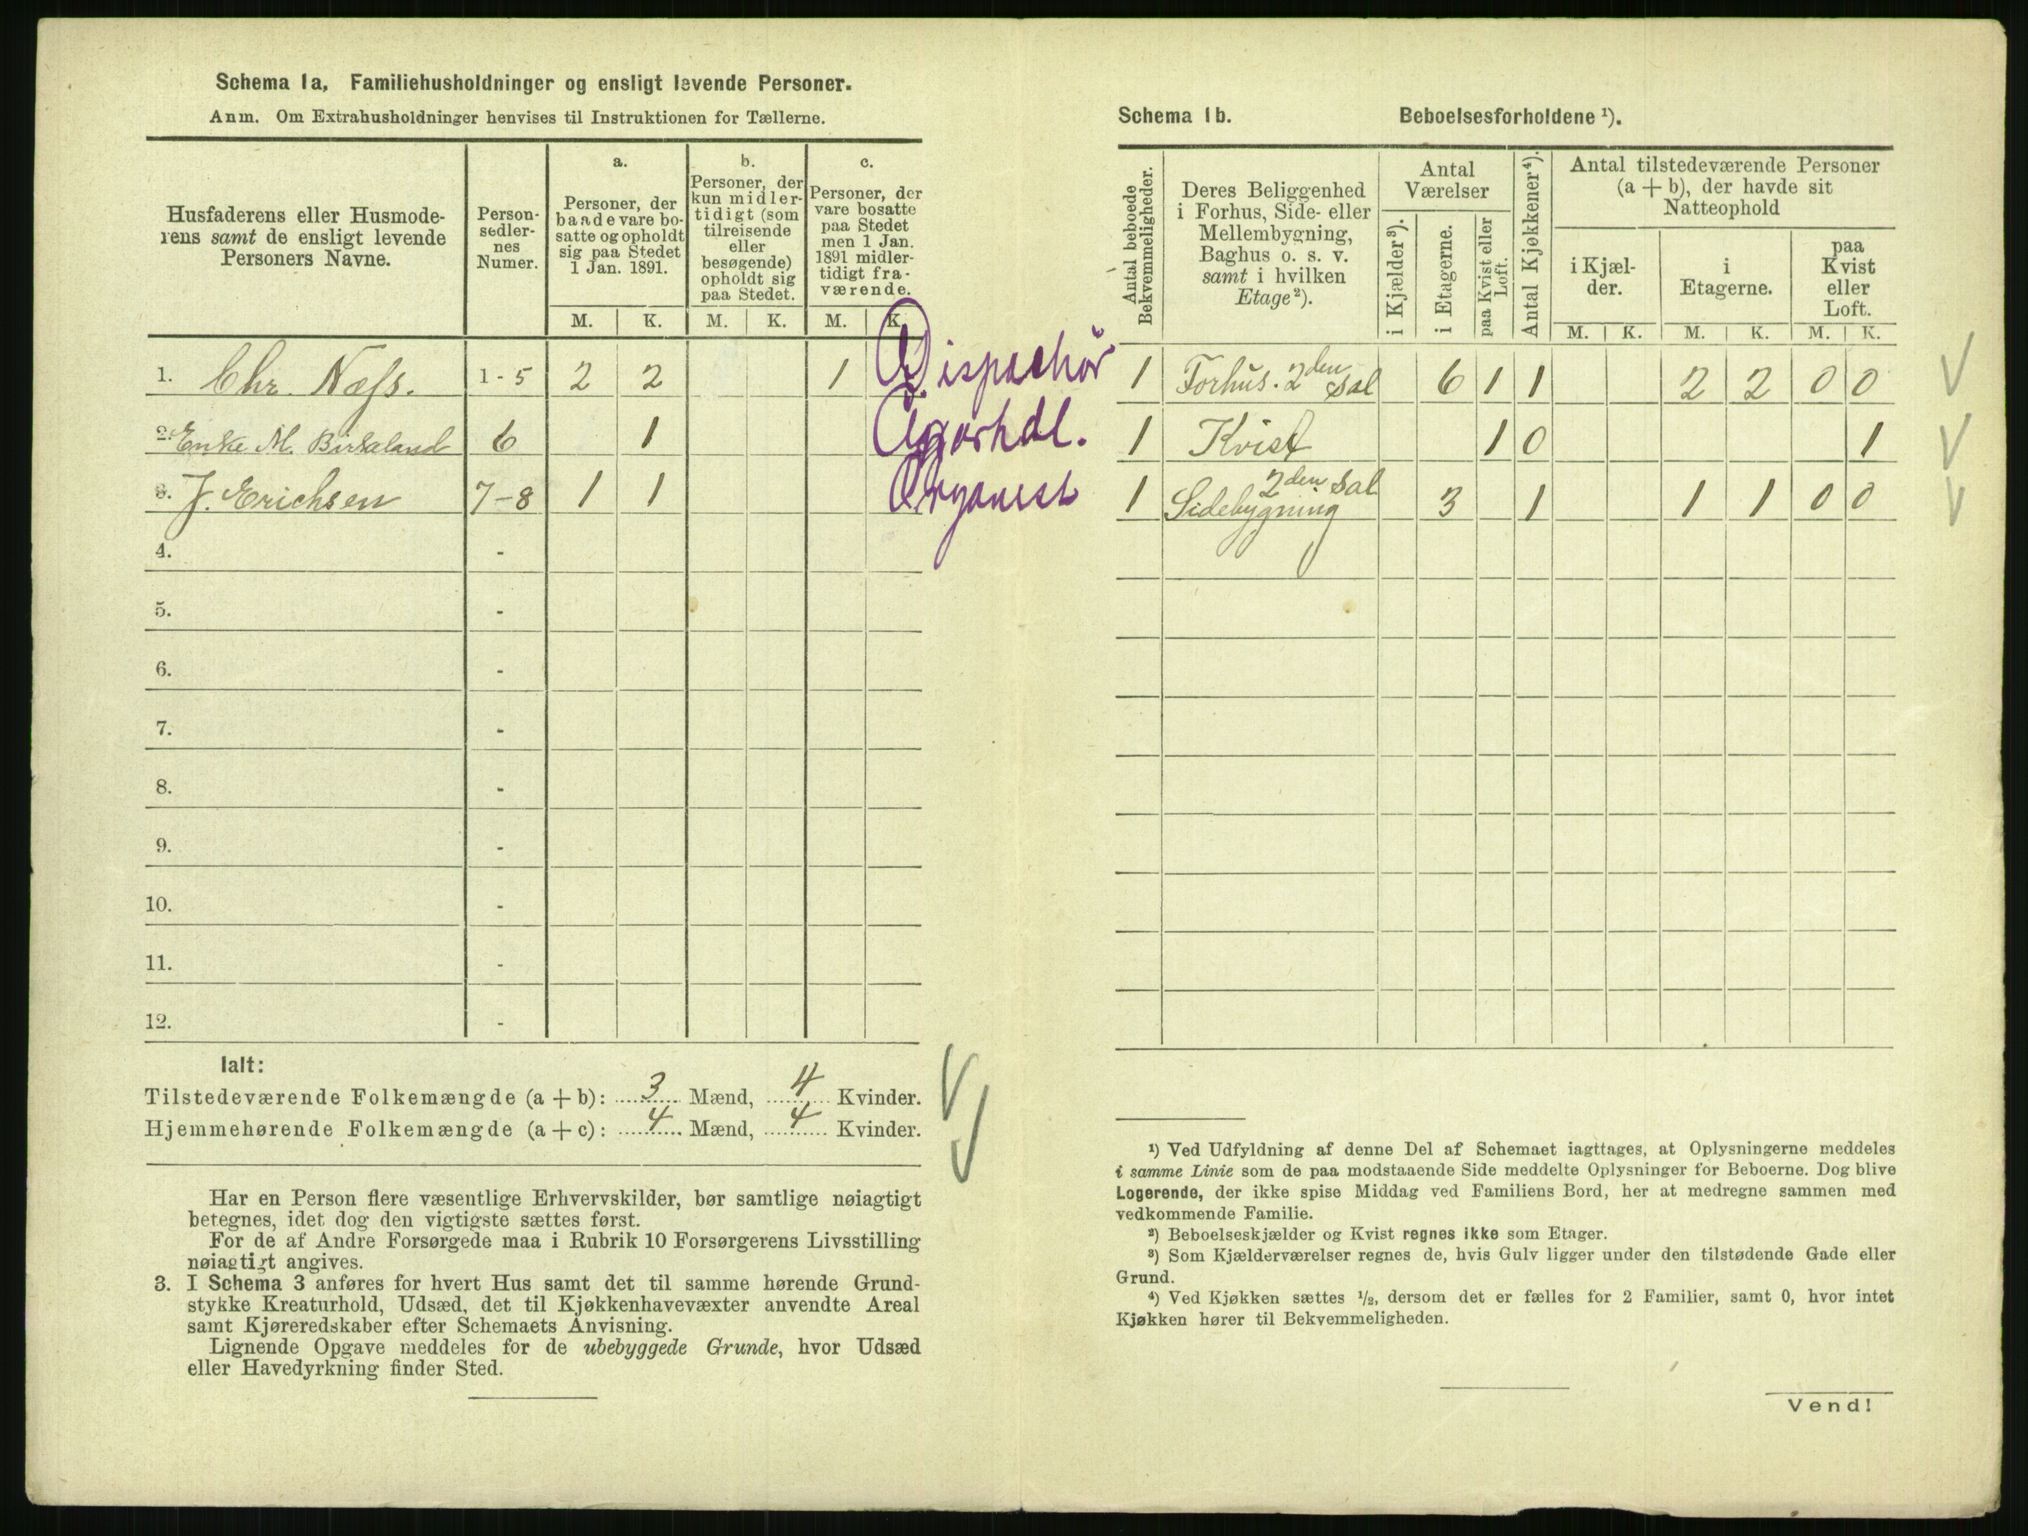 Schema 1a, Familiehusholdninger og ensligt levende Personer.
Anm. Om Extrahusholdninger henvises til Instruktionen for Tællerne.
Husfaderens eller Husmode-
rens samt de ensligt levende
Personers Navne.
Person-
sedler-
nes
Numer.
a.
Personer, der
baade vare bo-
satte og opholdt
sig paa Stedet
1 Jan. 1891.
b.
Personer, der
kun midler-
tidigt (som
tilreisende
eller
besøgende)
opholdt sig
paa Stedet.
c.
Personer, der
vare bosatte
paa Stedet
men 1 Jan.
1891 midler-
tidigt fra-
værende.
M. K. M. K. M. K.
1. Chr. Næss. 1-5 2 2 1 Dispachör
2. Enke M. Birkeland 6 1 Cigarhdl.
3. J. Erichsen 7-8 1 1 Organist
4. -
5. -
6. -
7. -
8. -
9. -
10. -
11. -
12. -
Ialt:
Tilstedeværende Folkemængde (a + b): 3 Mænd, 4 Kvinder.
Hjemmehørende Folkemængde (a + c): 4 Mænd, 4 Kvinder.
Har en Person flere væsentlige Erhvervskilder, bør samtlige nøiagtigt
betegnes, idet dog den vigtigste sættes først.
For de af Andre Forsørgede maa i Rubrik 10 Forsørgerens Livsstilling
nøiagtigt angives.
3. I Schema 3 anføres for hvert Hus samt det til samme hørende Grund-
stykke Kreaturhold, Udsæd, det til Kjøkkenhavevæxter anvendte Areal
samt Kjøreredskaber efter Schemaets Anvisning.
Lignende Opgave meddeles for de ubebyggede Grunde, hvor Udsæd
eller Havedyrkning finder Sted.
Schema 1b. Beboelsesforholdene ¹).
Antal beboede
Bekvemmeligheder.
Deres Beliggenhed
i Forhus, Side- eller
Mellembygning,
Baghus o. s. v.
samt i hvilken
Etage ²).
Antal
Værelser
i Kjælder ³).
i Etagerne.
paa Kvist eller
Loft.
Antal Kjøkkener ⁴).
Antal tilstedeværende Personer
(a + b), der havde sit
Natteophold
i Kjæl-
der.
i
Etagerne.
paa
Kvist
eller
Loft.
M. K. M. K. M. K.
1 Forhus. 2den Sal 6 1 1 2 2 0 0
1 Kvist 1 0 1
1 Sidebygning 2den Sal 3 1 1 1 0 0
¹) Ved Udfyldning af denne Del af Schemaet iagttages, at Oplysningerne meddeles
i samme Linie som de paa modstaaende Side meddelte Oplysninger for Beboerne. Dog blive
Logerende, der ikke spise Middag ved Familiens Bord, her at medregne sammen med
vedkommende Familie.
²) Beboelseskjælder og Kvist regnes ikke som Etager.
³) Som Kjælderværelser regnes de, hvis Gulv ligger under den tilstødende Gade eller
Grund.
⁴) Ved Kjøkken sættes 1/2, dersom det er fælles for 2 Familier, samt 0, hvor intet
Kjøkken hører til Bekvemmeligheden.
Vend!